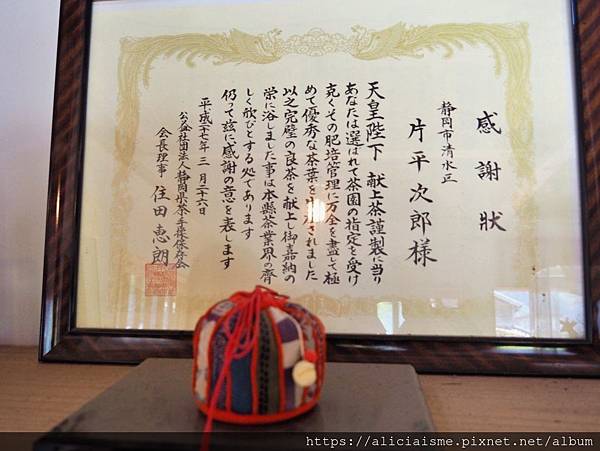 感謝狀
静岡市清水区
片平次郎様
天皇陛下 献上茶謹製に当り
あなたは選ばれて茶園の指定を受け
克くその肥培管理に万全を盡して極
めて優秀な茶葉を生産されました
以之完璧の良茶を献上し御嘉納の
栄に浴しました事は本縣茶業界の齊
しく欣びとする処であります
仍って茲に感謝の意を表します
平成二十七年三月二十六日
公益社団法人静岡県茶手揉保存会
会長理事 住田恵朗
https://aliciaisme.pixnet.net/album